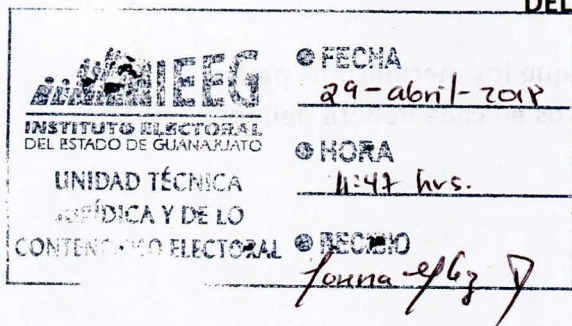 DEL
IEEG
INSTITUTO ELECTORAL
DEL ESTADO DE GUANAJUATO
UNIDAD TÉCNICA
JURÍDICA Y DE LO
CONTENCIOSO ELECTORAL
FECHA
29-abril-2018
HORA
11:47 hrs.
RECIBIO